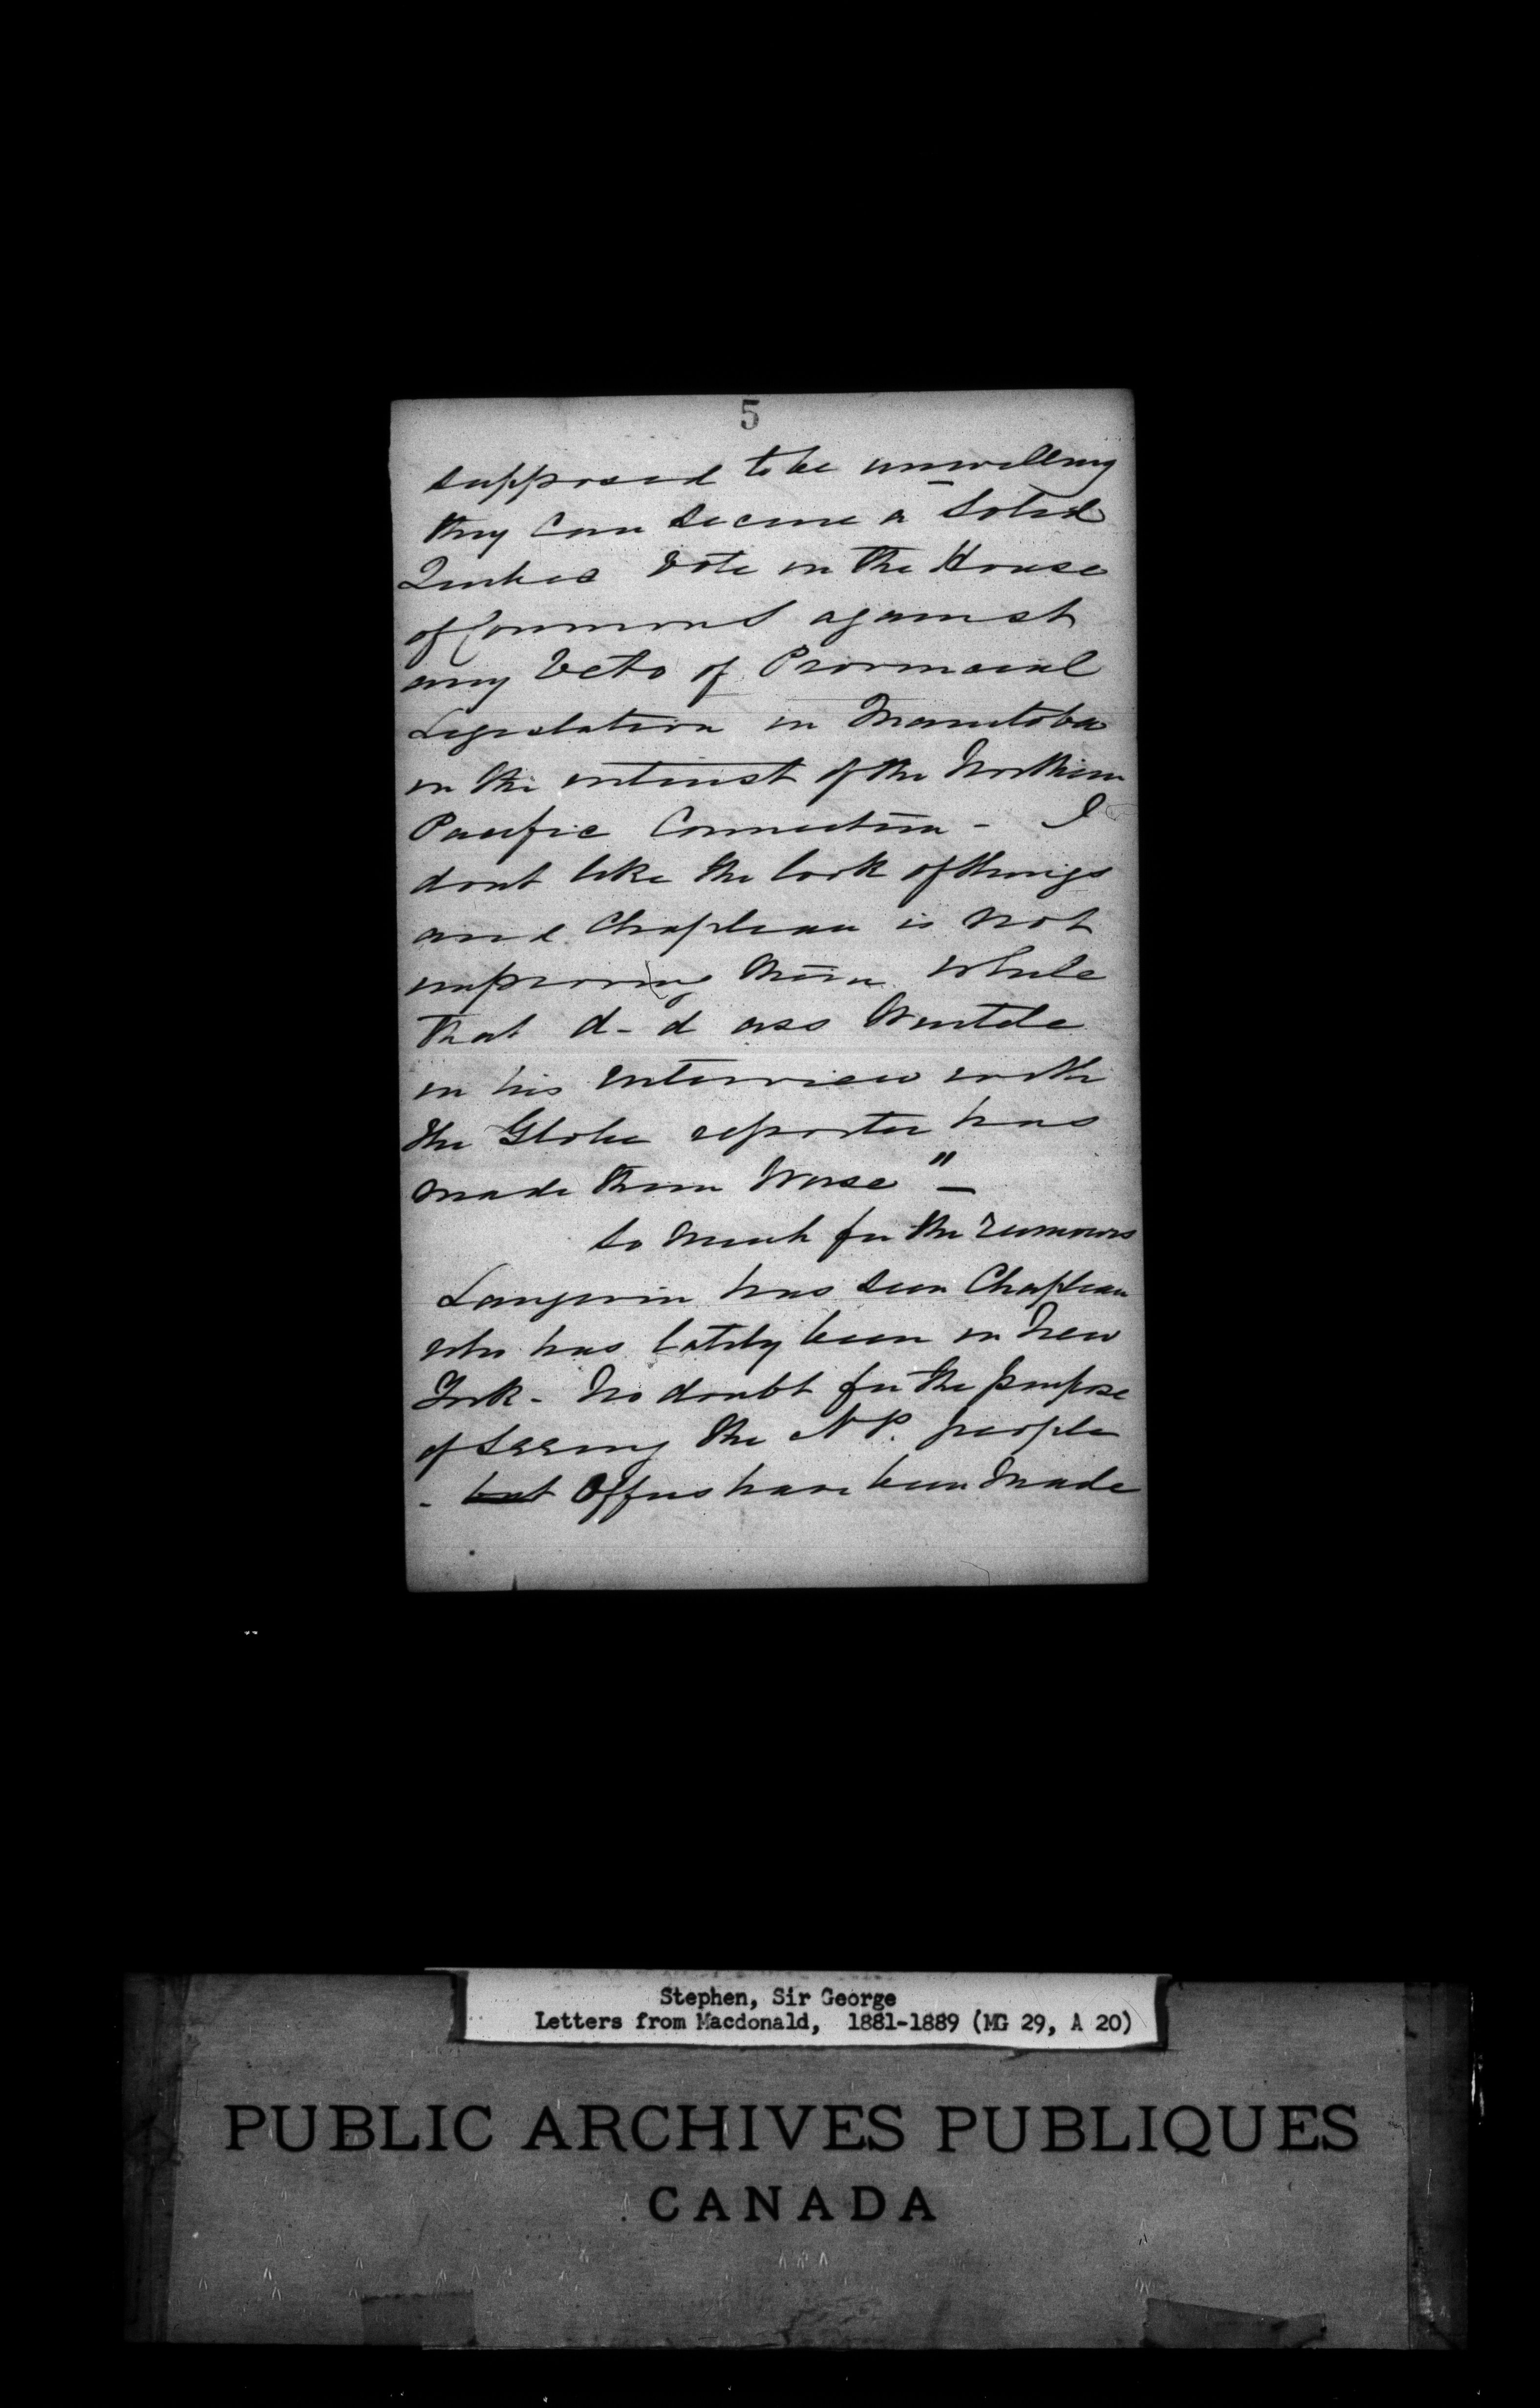 5
supposed to be unwilling
they can secure a solid
Quebec vote in the House
of Commons against
any Veto of Provincial
Legislation in Manitoba
in the interest of the Northern
Pacific Connection - I
dont like the look of things
and Chapleau is not
improving them while
that d-d ass Wurtele
in his interview with
the Globe reporter has
made them worse" -
So much for the rumours
Langevin has seen Chapleau
who has lately been in New
York - No doubt for the purpose
of seeing the N P. people
- but Offers have been made
Stephen, Sir George
Letters from Macdonald, 1881-1889 (MG 29, A 20)
PUBLIC ARCHIVES PUBLIQUES
CANADA